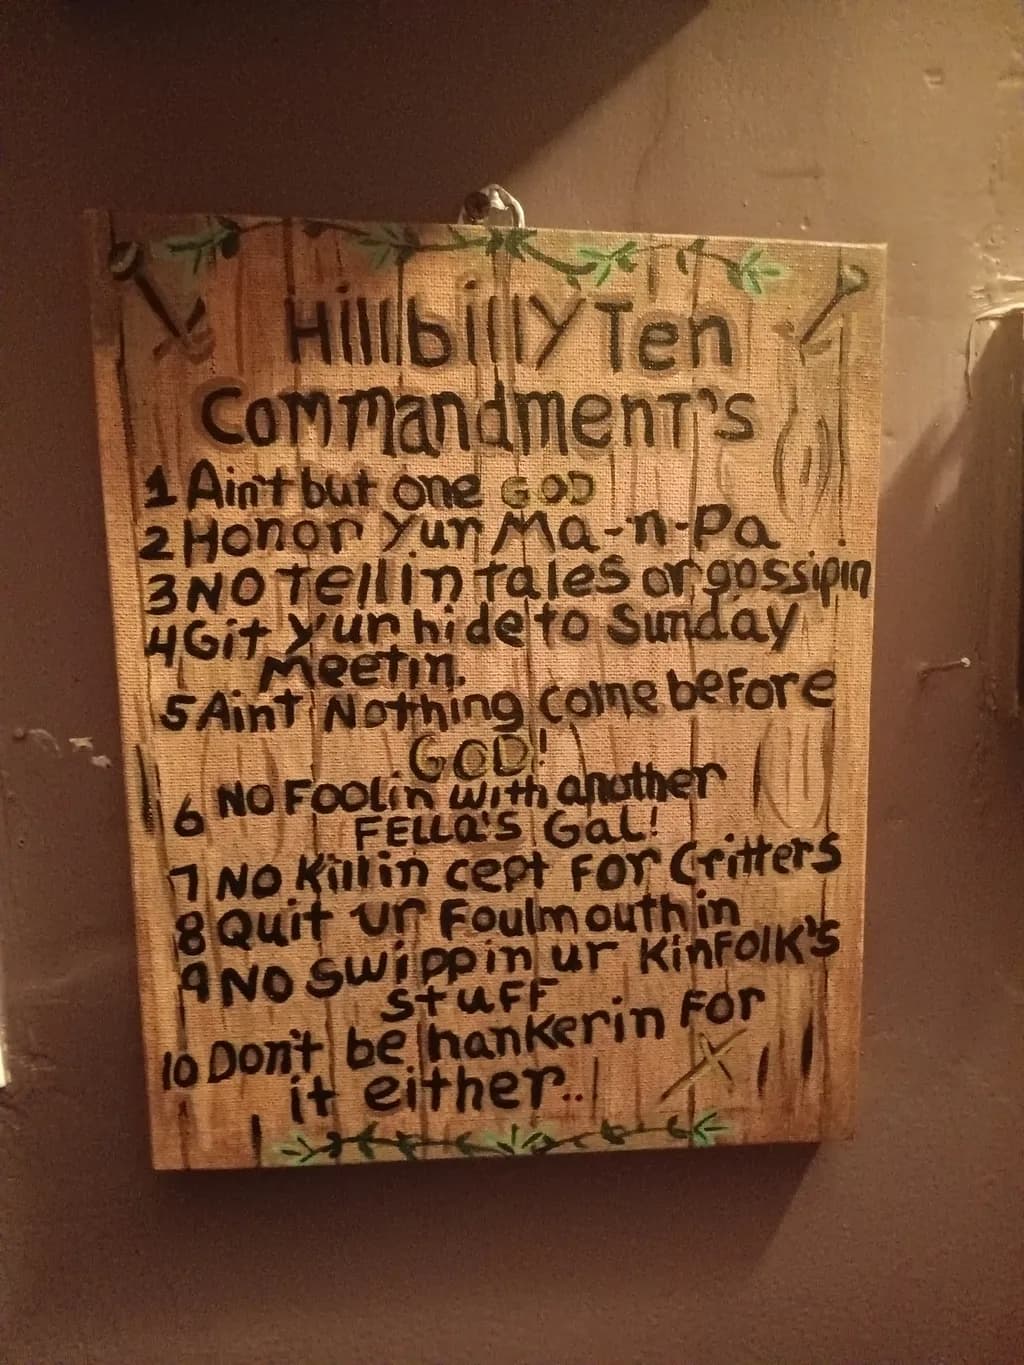 Hillbilly Ten
Commandment's
1 Ain't but one GOD
2 Honor Yur Ma-n-Pa
3 NO Tellin tales or gossipin
4 Git yur hide to Sunday
Meetin.
5 Aint Nothing come before
GOD!
6 NO Foolin with another
FELLA'S Gal!
7 NO Killin cept For Critters
8 Quit ur Foulmouthin
9 NO Swippin ur KinFolk's
stuFF
10 Don't be hankerin For
it either..